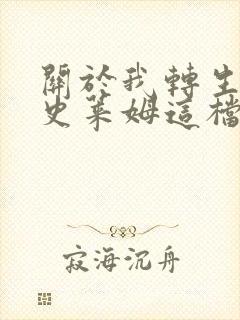 關於我轉生
史萊姆這檔
寂海沉舟